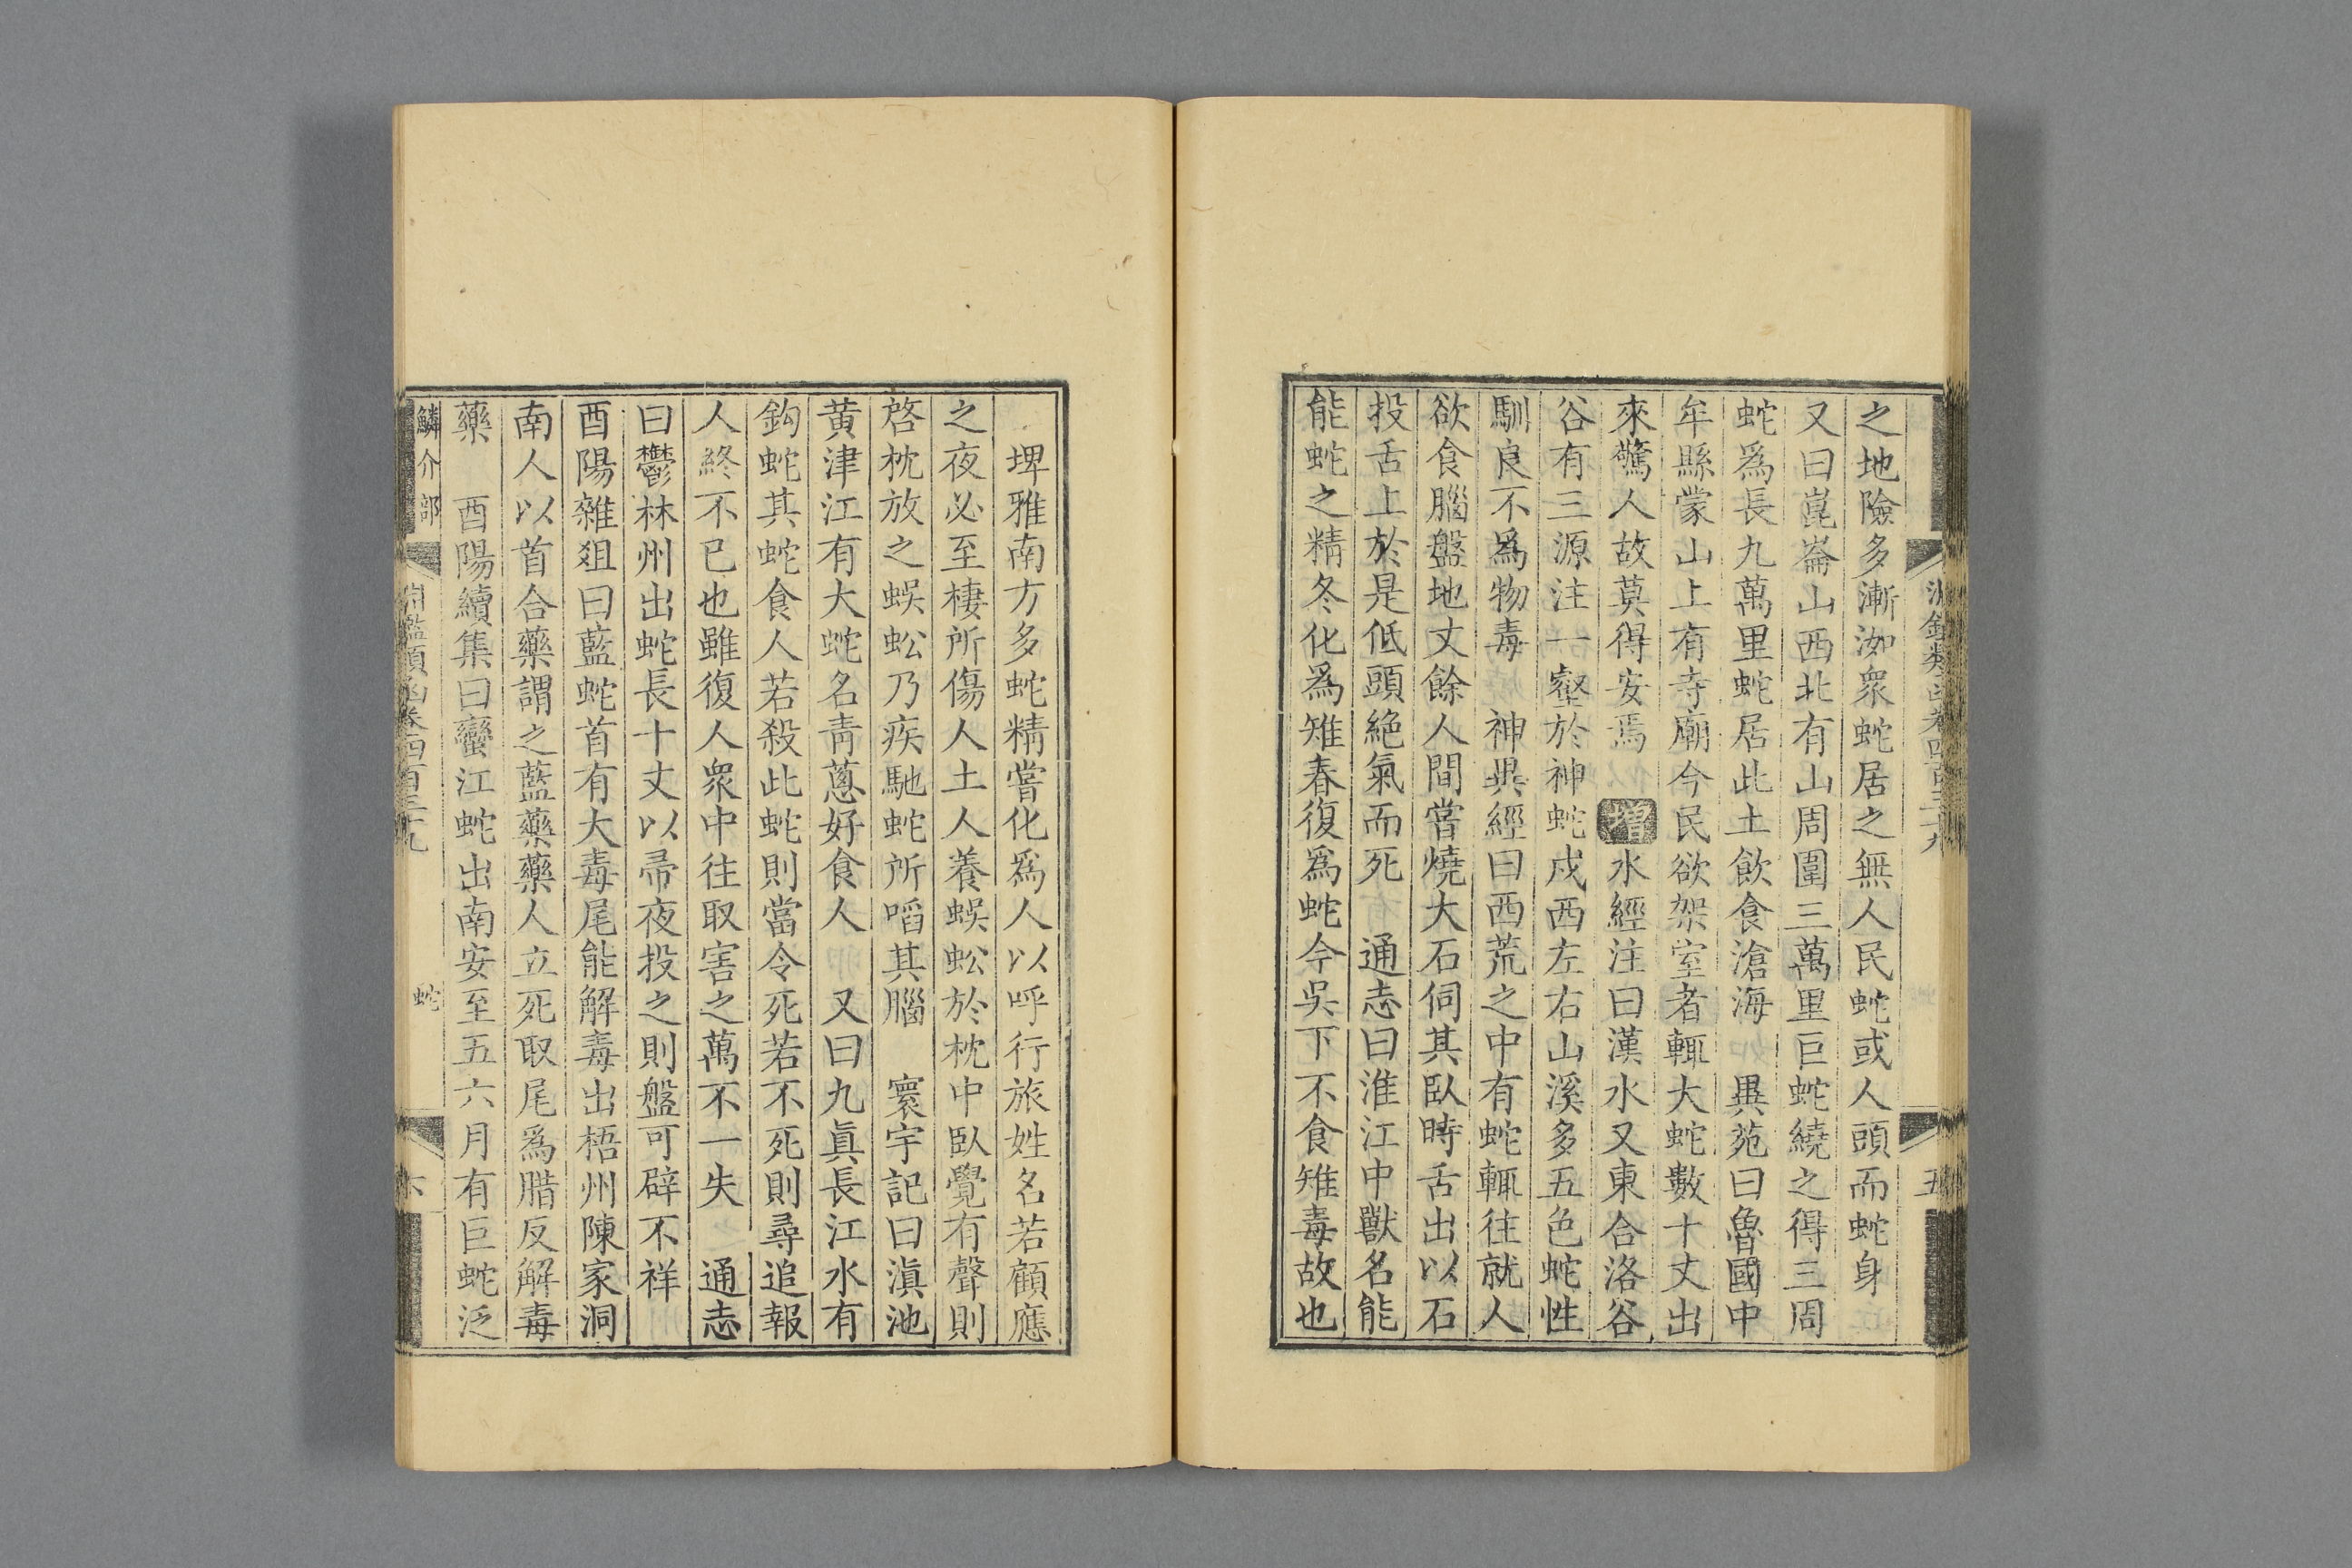 之地險多漸洳衆蛇居之無人民蛇或人頭而蛇身
又曰崑崙山西北有山周圍三萬里巨蛇繞之得三周
蛇爲長九萬里蛇居此土飮食滄海 異苑曰魯國中
牟縣蒙山上有寺廟今民欲架室者輒大蛇數十丈出
來驚人故莫得安焉 增水經注曰漢水又東合洛谷
谷有三源注一壑於神蛇戍西左右山溪多五色蛇性
馴良不爲物毒 神異經曰西荒之中有蛇輒往就人
欲食腦盤地丈餘人間嘗燒大石伺其臥時舌出以石
投舌上於是低頭絶氣而死 通志曰淮江中獸名能
能蛇之精冬化爲雉春復爲蛇今吳下不食雉毒故也
五
埤雅南方多蛇精嘗化爲人以呼行旅姓名若顧應
之夜必至棲所傷人土人養蜈蚣於枕中臥覺有聲則
啓枕放之蜈蚣乃疾馳蛇所啗其腦 寰宇記曰滇池
黄津江有大蛇名靑蔥好食人 又曰九眞長江水有
鈎蛇其蛇食人若殺此蛇則當令死若不死則尋追報
人終不已也雖復人衆中往取害之萬不一失 通志
曰鬱林州出蛇長十丈以帚夜投之則盤可辟不祥
酉陽雜爼曰藍蛇首有大毒尾能解毒出梧州陳家洞
南人以首合藥謂之藍藥藥人立死取尾爲腊反解毒
藥 酉陽續集曰蠻江蛇出南安至五六月有巨蛇泛
鱗介部 淵鑑類函卷四百三十九 蛇 六